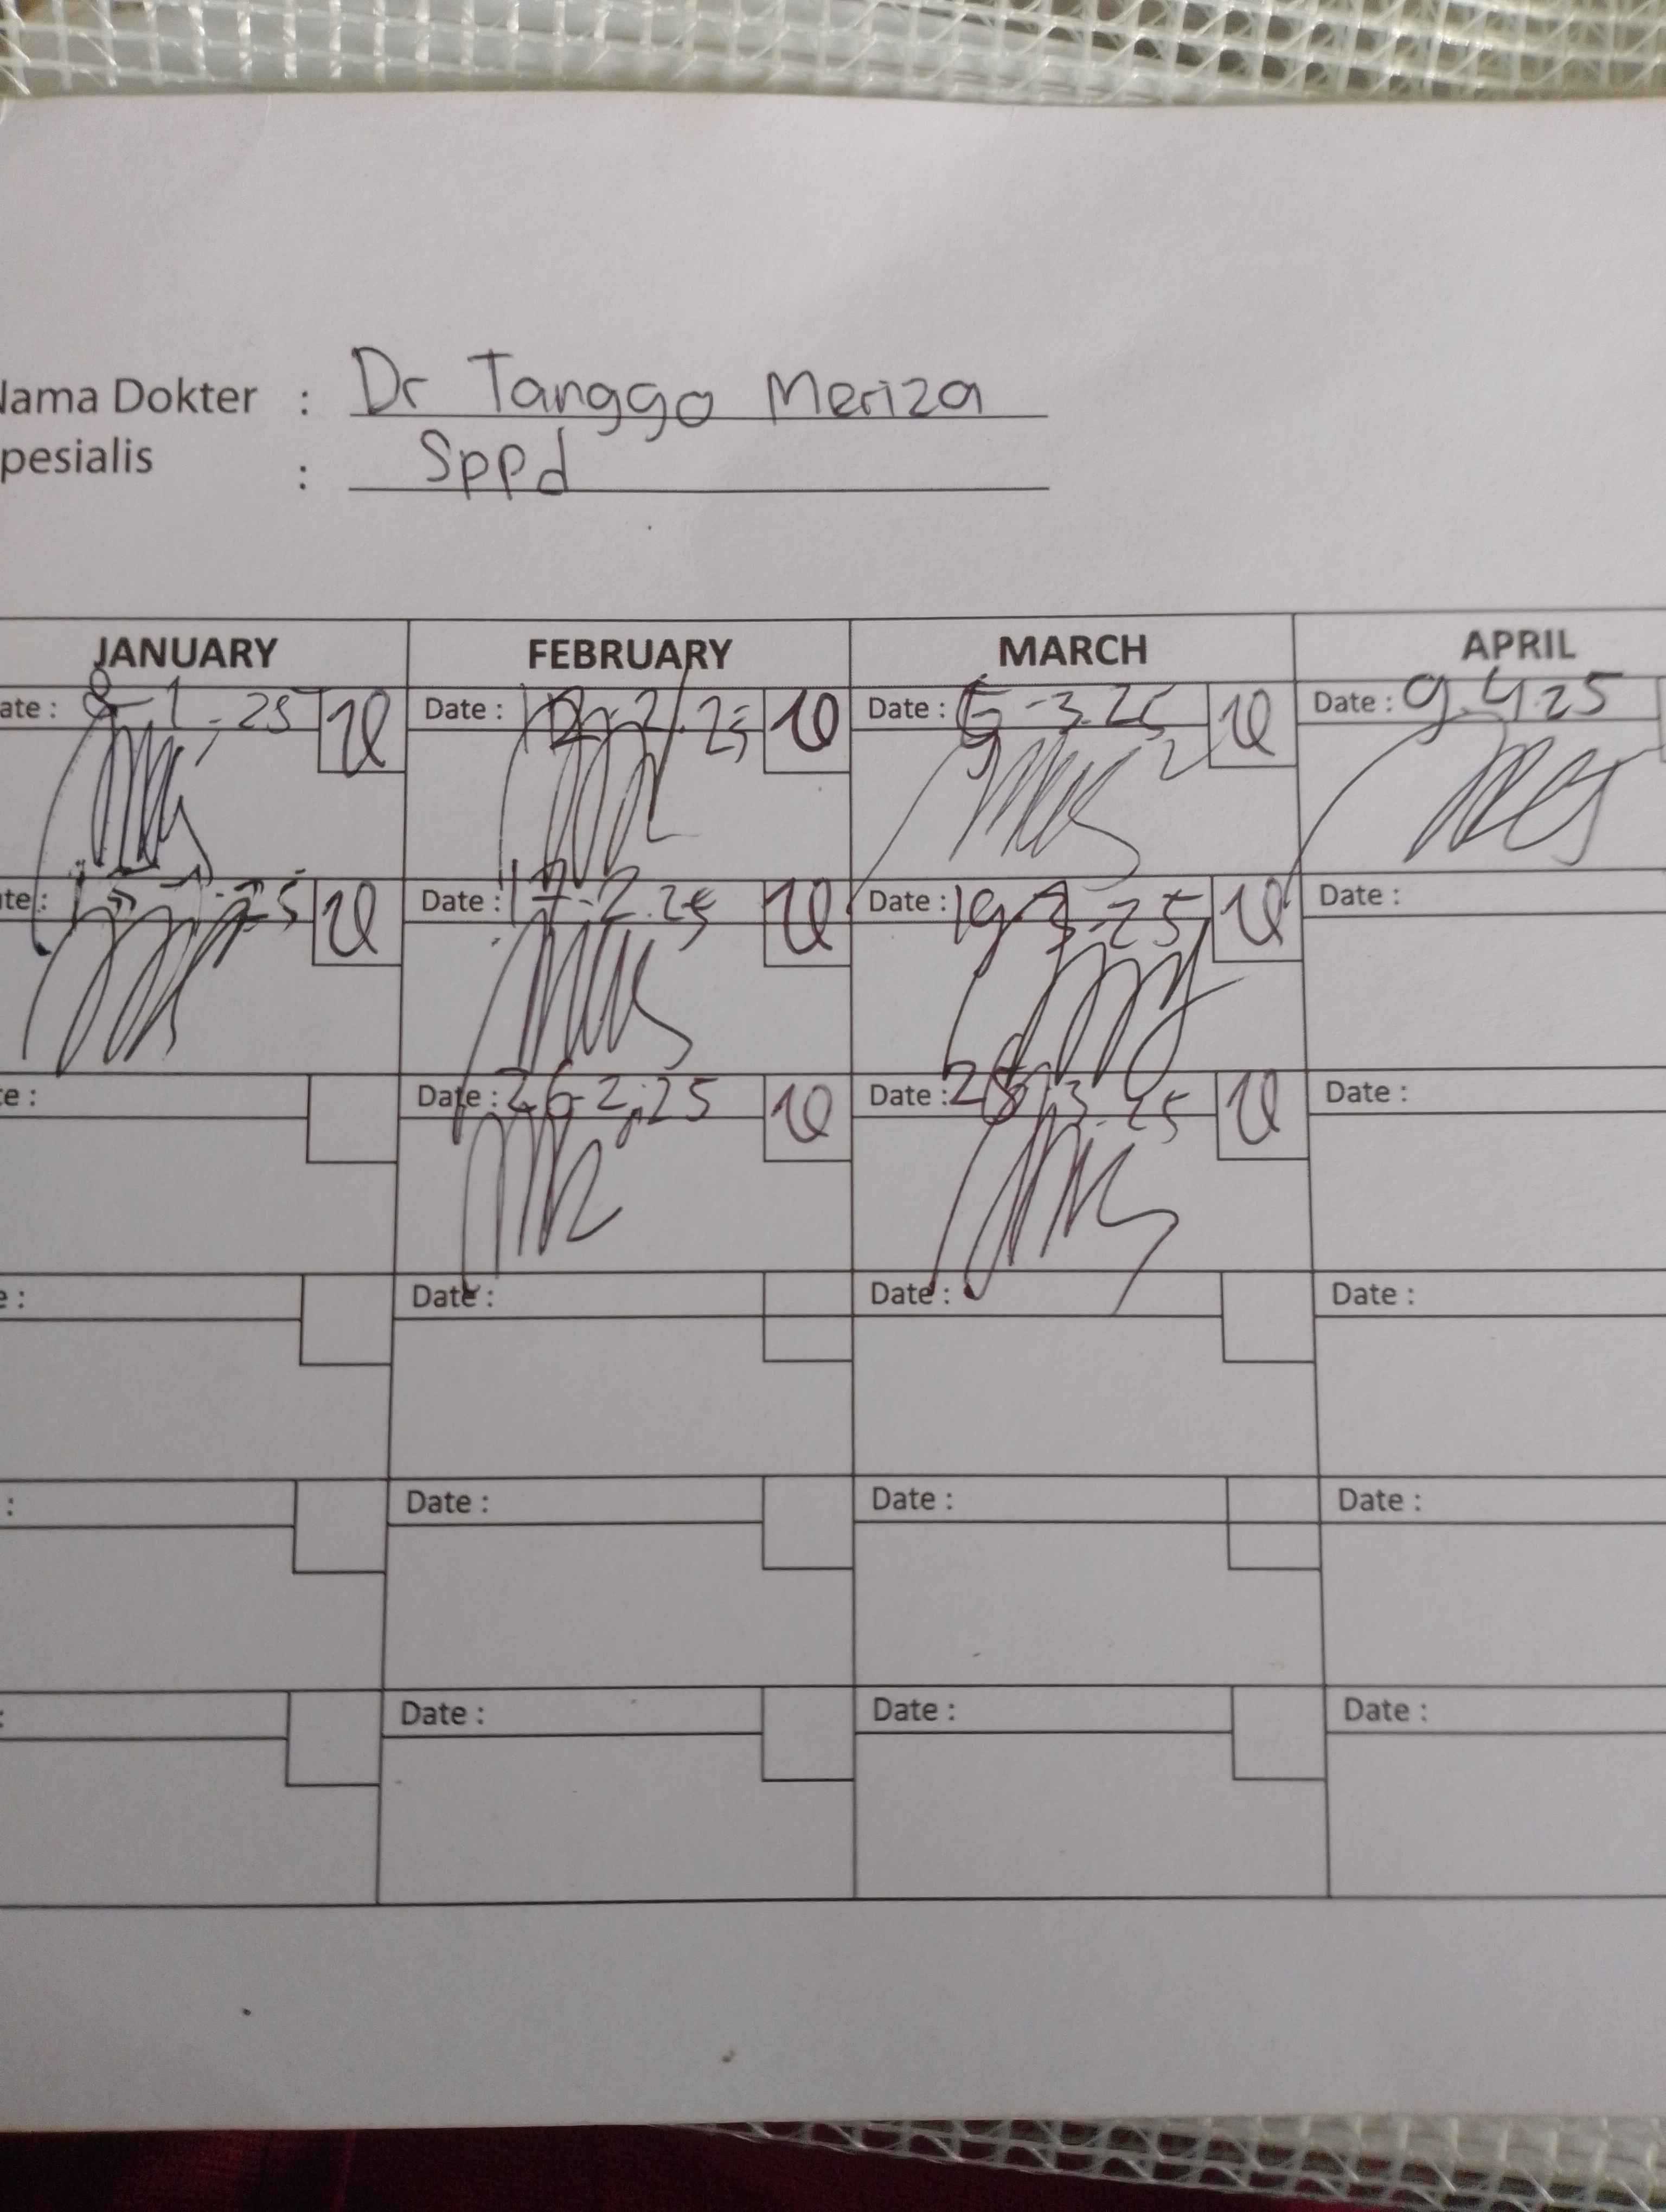 Nama Dokter : Dr Tanggo Meriza
Spesialis : Sppd
JANUARY FEBRUARY MARCH APRIL
Date : 8-1-25 Date : 12-2.25 Date : 5-3.25 Date : 9.4.25
Date : Date : 17-2.25 Date : 19-3-25 Date :
Date : Date : 26-2.25 Date : 3.25 Date :
Date : Date : Date : Date :
Date : Date : Date :
Date : Date : Date :